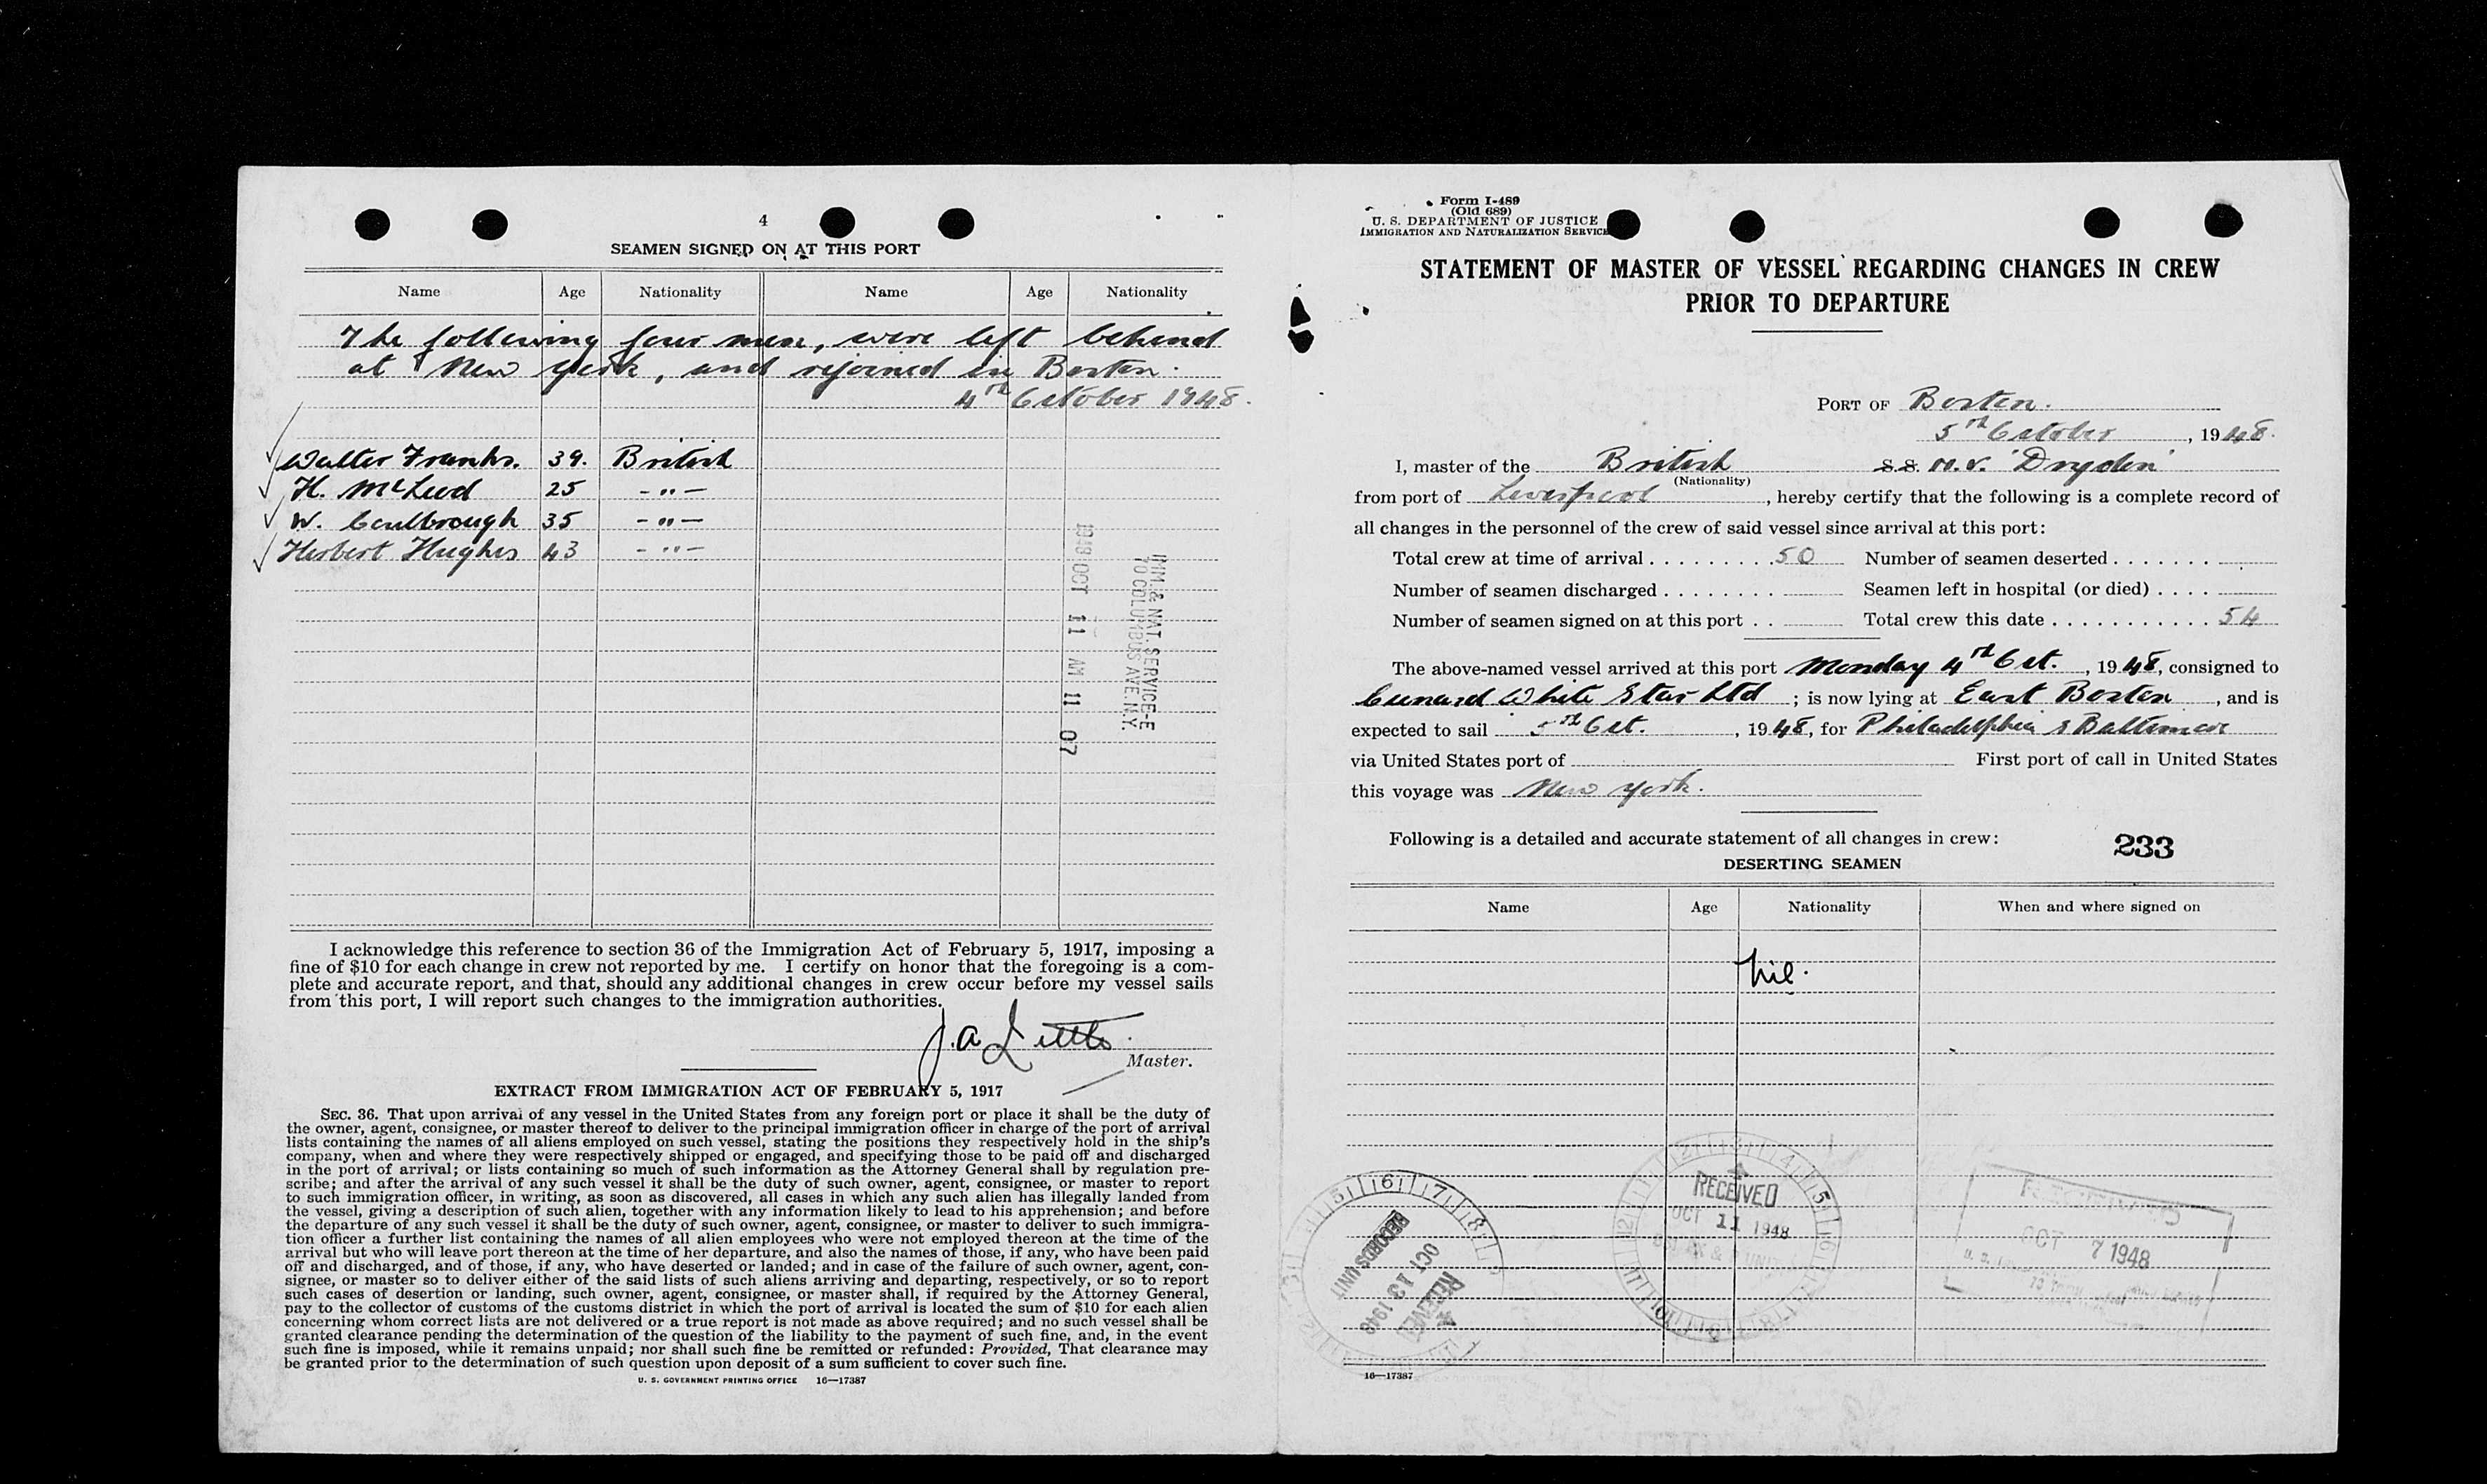 4
SEAMEN SIGNED ON AT THIS PORT
Name Age Nationality Name Age Nationality
The following four men, were left behind
at New York, and rejoined in Boston.
4th October 1948.
Walter Franks. 39. British
H. McLeod 25 - " -
W. Coulbrough 35 - " -
Herbert Hughes 43 - " -
IMM. & NAT. SERVICE-E
70 COLUMBUS AVE. N.Y.
1948 OCT 11 AM 11 07
I acknowledge this reference to section 36 of the Immigration Act of February 5, 1917, imposing a
fine of $10 for each change in crew not reported by me. I certify on honor that the foregoing is a com-
plete and accurate report, and that, should any additional changes in crew occur before my vessel sails
from this port, I will report such changes to the immigration authorities.
J. A. Little.
Master.
EXTRACT FROM IMMIGRATION ACT OF FEBRUARY 5, 1917
SEC. 36. That upon arrival of any vessel in the United States from any foreign port or place it shall be the duty of
the owner, agent, consignee, or master thereof to deliver to the principal immigration officer in charge of the port of arrival
lists containing the names of all aliens employed on such vessel, stating the positions they respectively hold in the ship's
company, when and where they were respectively shipped or engaged, and specifying those to be paid off and discharged
in the port of arrival; or lists containing so much of such information as the Attorney General shall by regulation pre-
scribe; and after the arrival of any such vessel it shall be the duty of such owner, agent, consignee, or master to report
to such immigration officer, in writing, as soon as discovered, all cases in which any such alien has illegally landed from
the vessel, giving a description of such alien, together with any information likely to lead to his apprehension; and before
the departure of any such vessel it shall be the duty of such owner, agent, consignee, or master to deliver to such immigra-
tion officer a further list containing the names of all alien employees who were not employed thereon at the time of the
arrival but who will leave port thereon at the time of her departure, and also the names of those, if any, who have been paid
off and discharged, and of those, if any, who have deserted or landed; and in case of the failure of such owner, agent, con-
signee, or master so to deliver either of the said lists of such aliens arriving and departing, respectively, or so to report
such cases of desertion or landing, such owner, agent, consignee, or master shall, if required by the Attorney General,
pay to the collector of customs of the customs district in which the port of arrival is located the sum of $10 for each alien
concerning whom correct lists are not delivered or a true report is not made as above required; and no such vessel shall be
granted clearance pending the determination of the question of the liability to the payment of such fine, and, in the event
such fine is imposed, while it remains unpaid; nor shall such fine be remitted or refunded: Provided, That clearance may
be granted prior to the determination of such question upon deposit of a sum sufficient to cover such fine.
U. S. GOVERNMENT PRINTING OFFICE 16—17387
Form I-489
(Old 689)
U. S. DEPARTMENT OF JUSTICE
IMMIGRATION AND NATURALIZATION SERVICE
STATEMENT OF MASTER OF VESSEL REGARDING CHANGES IN CREW
PRIOR TO DEPARTURE
PORT OF Boston.
5th October, 1948.
I, master of the British S.S. M.V. "Dryden"
(Nationality)
from port of Liverpool, hereby certify that the following is a complete record of
all changes in the personnel of the crew of said vessel since arrival at this port:
Total crew at time of arrival . . . . . . . . . 50 Number of seamen deserted . . . . . . .
Number of seamen discharged . . . . . . . . Seamen left in hospital (or died) . . . .
Number of seamen signed on at this port . . Total crew this date . . . . . . . . . . . 54
The above-named vessel arrived at this port Monday 4th Oct., 1948, consigned to
Cunard White Star Ltd ; is now lying at East Boston, and is
expected to sail 5th Oct., 1948, for Philadelphia & Baltimore
via United States port of First port of call in United States
this voyage was New York.
Following is a detailed and accurate statement of all changes in crew: 233
DESERTING SEAMEN
Name Age Nationality When and where signed on
Nil.
RECORDS UNIT
OCT 13 1948
RECEIVED
RECEIVED
OCT 11 1948
OCT 7 1948
16—17387